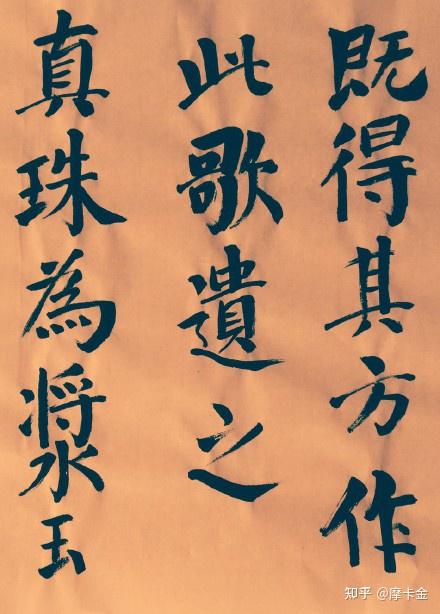 既得其方作
此歌遺之
真珠為漿玉
知乎 @摩卡金